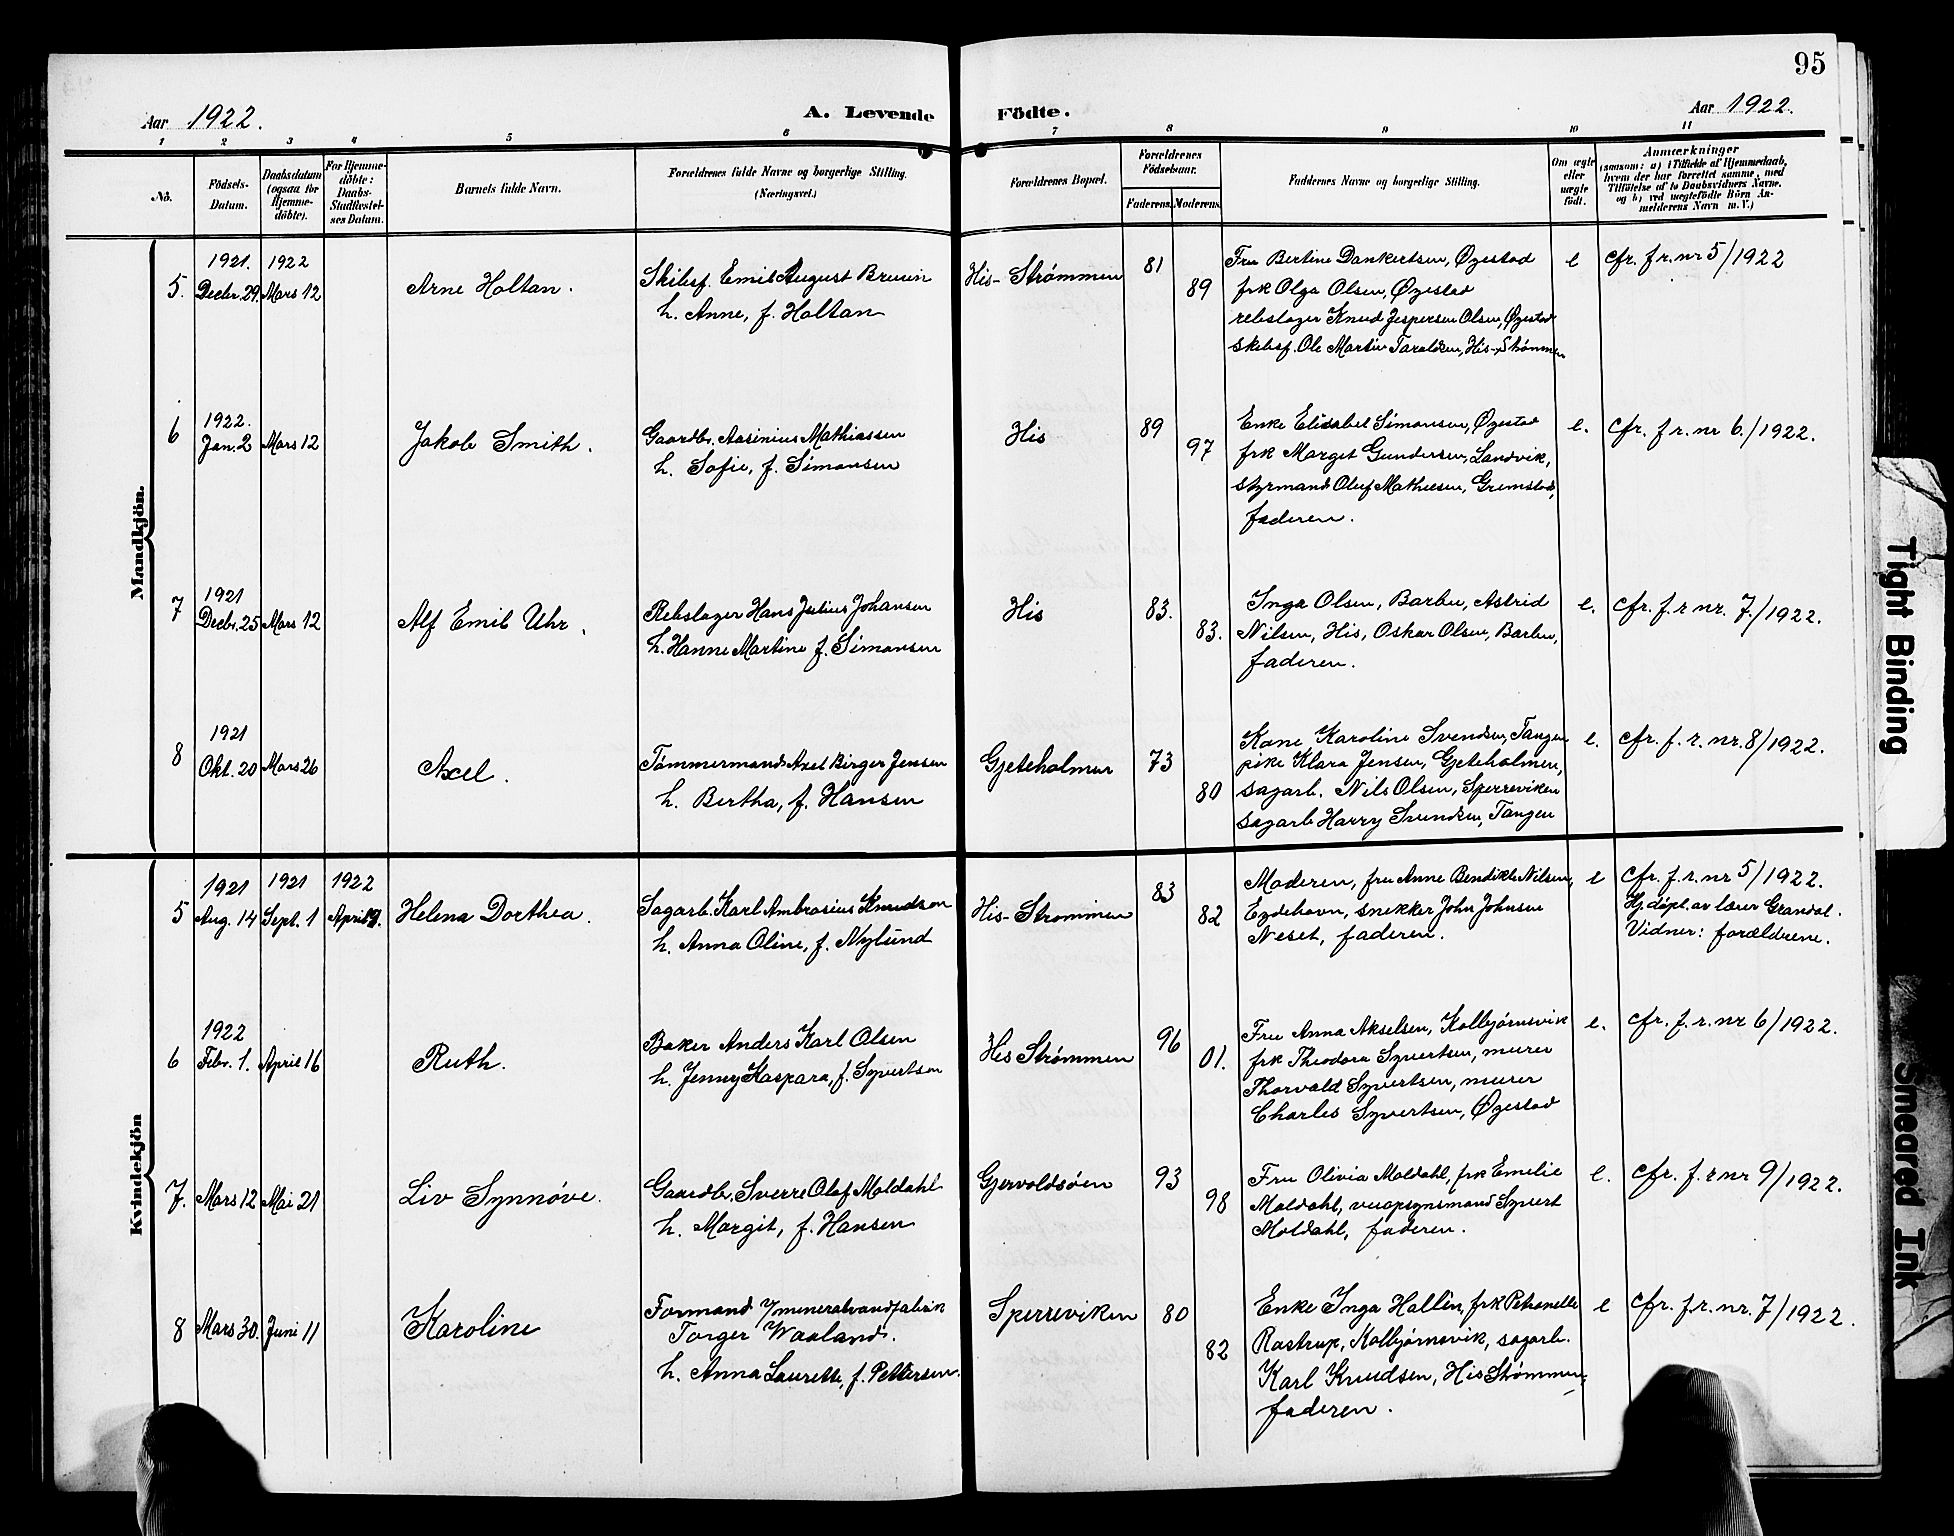 95
Aar 1922.
A. Levende Födte.
Aar 1922.
1 2 3 4 5 6 7 8 9 10 11
No.
Födsels-
Datum.
Daabsdatum
(ogsaa for
Hjemme-
döbte).
For Hjemme-
döbte:
Daabs-
Stadfæstel-
ses Datum.
Barnets fulde Navn.
Forældrenes fulde Navne og borgerlige Stilling.
(Næringsvei.)
Forældrenes Bopæl.
Forældrenes
Födselsaar.
Faderens. Moderens.
Faddernes Navne og borgerlige Stilling.
Om ægte
eller
uægte
födt.
Anmærkninger
(saasom: a) i Tilfælde af Hjemmedaab,
hvem der har forrettet samme, med
Tilföielse af to Daabsvidners Navne,
og b) ved uægtefödte Börn An-
melderens Navn m. V.)
Mandkjön.
5.
1921.
Decbr. 29.
1922
Mars 12
Arne Holtan.
Skibsf. Emil August Bruun
h. Anne, f. Holtan
His-Strømmen
81
89
Fru Bertine Dankertsen, Øyestad
frk Olga Olsen, Øyestad
rebslager Knud Jespersen Olsen, Øyestad
skibsf. Ole Martin Taraldsen, His-Strømmen
e
cfr. f. r. nr 5/1922
6
1922.
Jan. 2
Mars 12
Jakob Smith.
Gaardbr. Aasinius Mathiassen
h. Sofie, f. Simonsen
His
89
97
Enke Elisabet Simonsen, Øyestad
frk Margit Gundersen, Landvik,
styrmand Oluf Mathiesen, Grimstad,
faderen.
e.
cfr. f. r. nr 6./1922.
7
1921
Decbr. 25
Mars 12
Alf Emil Uhr.
Rebslager Hans Julius Johansen
h. Hanne Martine f. Simonsen
His
83.
83.
Inga Olsen, Barbu, Astrid
Nilsen, His, Oskar Olsen, Barbu,
faderen.
e.
cfr. f. r nr. 7./1922.
8
1921
Okt. 20
Mars 26
Axel.
Tømmermand Axel Birger Jensen
h. Bertha, f. Hansen
Gjeteholmen
73
80
Kone Karoline Svendsen, Tangen
pike Klara Jensen, Gjeteholmen,
sagarb. Nils Olsen, Sperreviken
sagarb Harry Svendsen, Tangen
e.
cfr. f. r. nr. 8/1922.
Kvindekjön
5
1921
Aug. 14
1921
Sept. 1
1922
April 9.
Helena Dorthea.
Sagarb. Karl Ambrosius Knudson
h. Anna Oline, f. Nylund
His-Strommen
83
82
Moderen, fru Anne Bendikte Nilsen,
Eydehavn, snekker John Johnsen
Neset, faderen.
e
cfr. f. r. nr 5/1922.
Hj. døpt. av lærer Grandal.
Vidner: forældrene.
6
1922
Febr. 1.
April 16
Ruth.
Baker Anders Karl Olsen
h. Jenny Kaspara, f. Syvertsen
His Strømmen
96
01.
Fru Anna Akselsen, Kolbjørnsvik
frk Theodora Syvertsen, murer
Thorvald Syvertsen, murer
Charles Syvertsen, Øyestad
e.
cfr. f. r. nr 6/1922.
7.
Mars 12
Mai 21
Liv Synnøve.
Gaardbr. Sverre Olaf Moldahl
h. Margit, f. Hansen
Gjervoldsøen
93
98
Fru Olivia Moldahl, frk Emelie
Moldahl, veiopsynsmand Syvert
Moldahl, faderen.
e.
cfr. f. r nr 9/1922.
8
Mars 30.
Juni 11
Karoline
Formand i mineralvandfabrik
Torger Waaland.
h. Anna Laurette, f. Pettersen.
Sperreviken
80
82
Enke Inga Hallèn, frk Petronelle
Rastrup, Kolbjørnsvik, sagarb.
Karl Knudsen, His Strømmen,
faderen.
e
cfr. f. r. nr. 7/1922.
Tight Binding
Smeared Ink